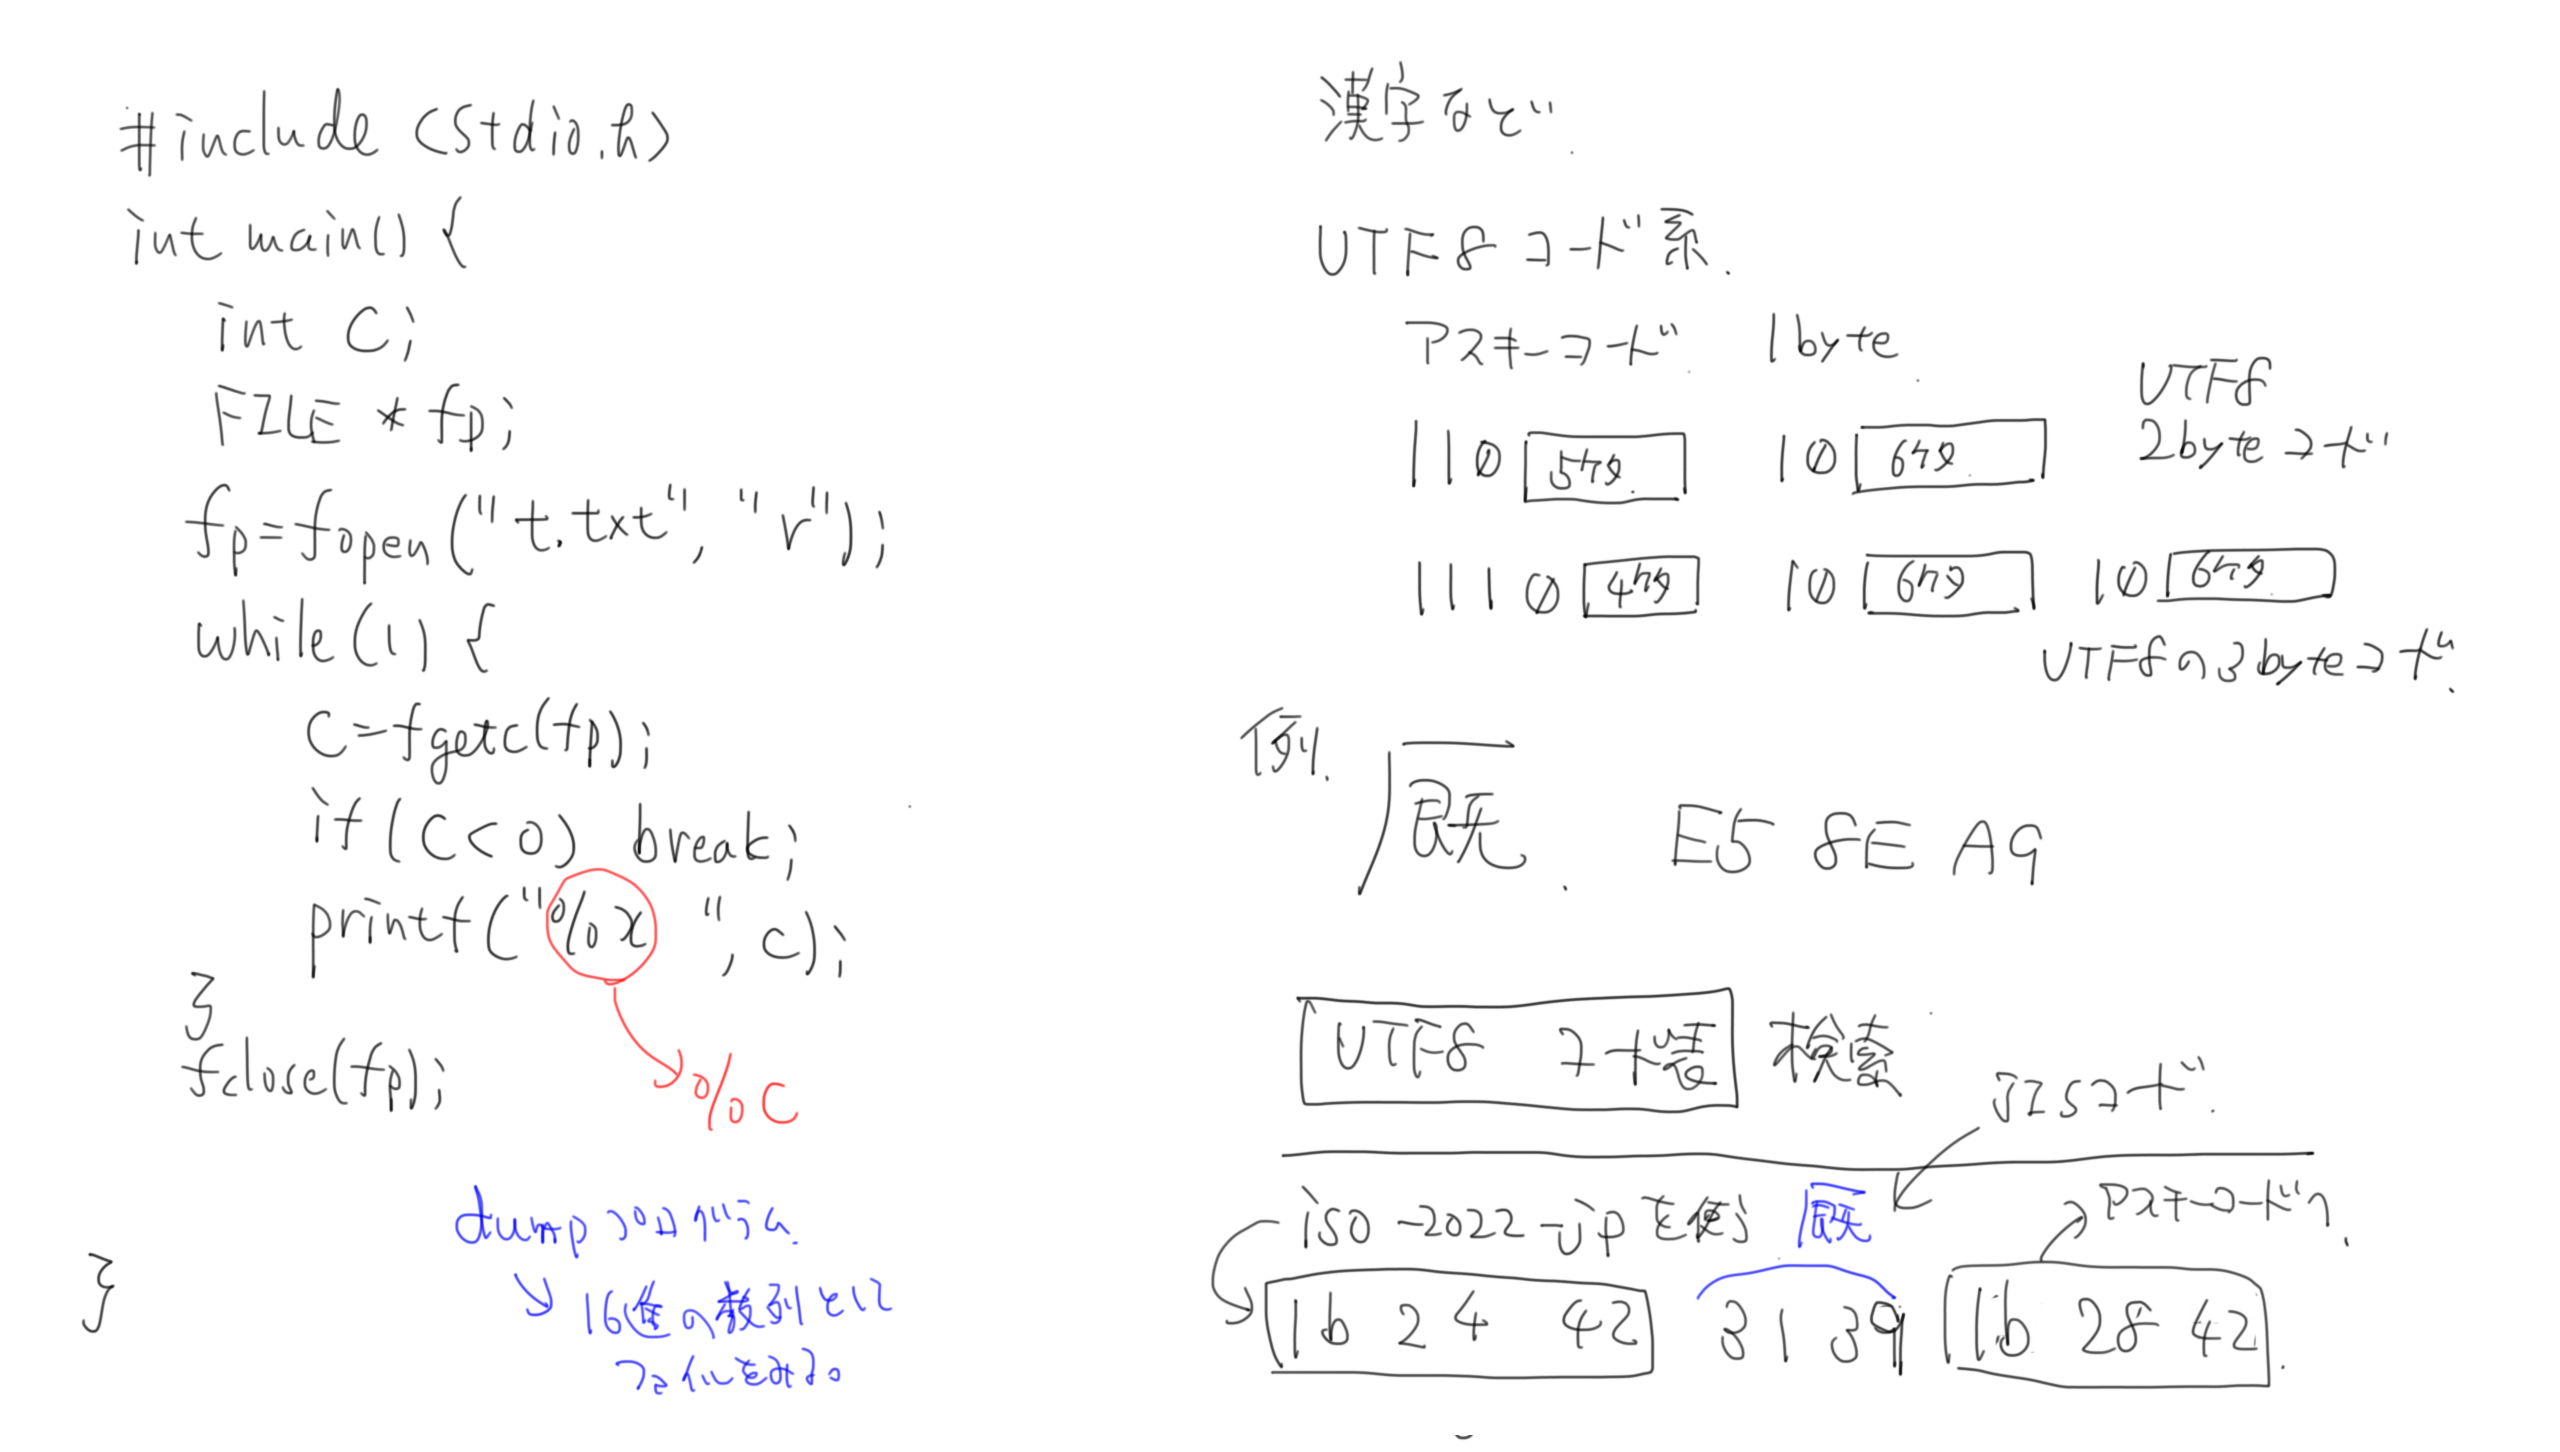 #include <stdio.h>
int main() {
int c;
FILE * fp;
fp=fopen("t.txt", "r");
while(1) {
c=fgetc(fp);
if(c<0) break;
printf("%x ", c);
}
fclose(fp);
%c
}
dumpプログラム
16進の数列として
ファイルをみる。
漢字など
UTF8 コード系.
アスキーコード 1byte
110 5ケタ 10 6ケタ
UTF8
2byteコード
1110 4ケタ 10 6ケタ 10 6ケタ
UTF8の3byteコード.
例.
厩. E5 8E A9
UTF8 コード表 検索
JISコード.
iso-2022-jpを使う 厩
アスキーコードへ.
1b 24 42 31 39 1b 28 42